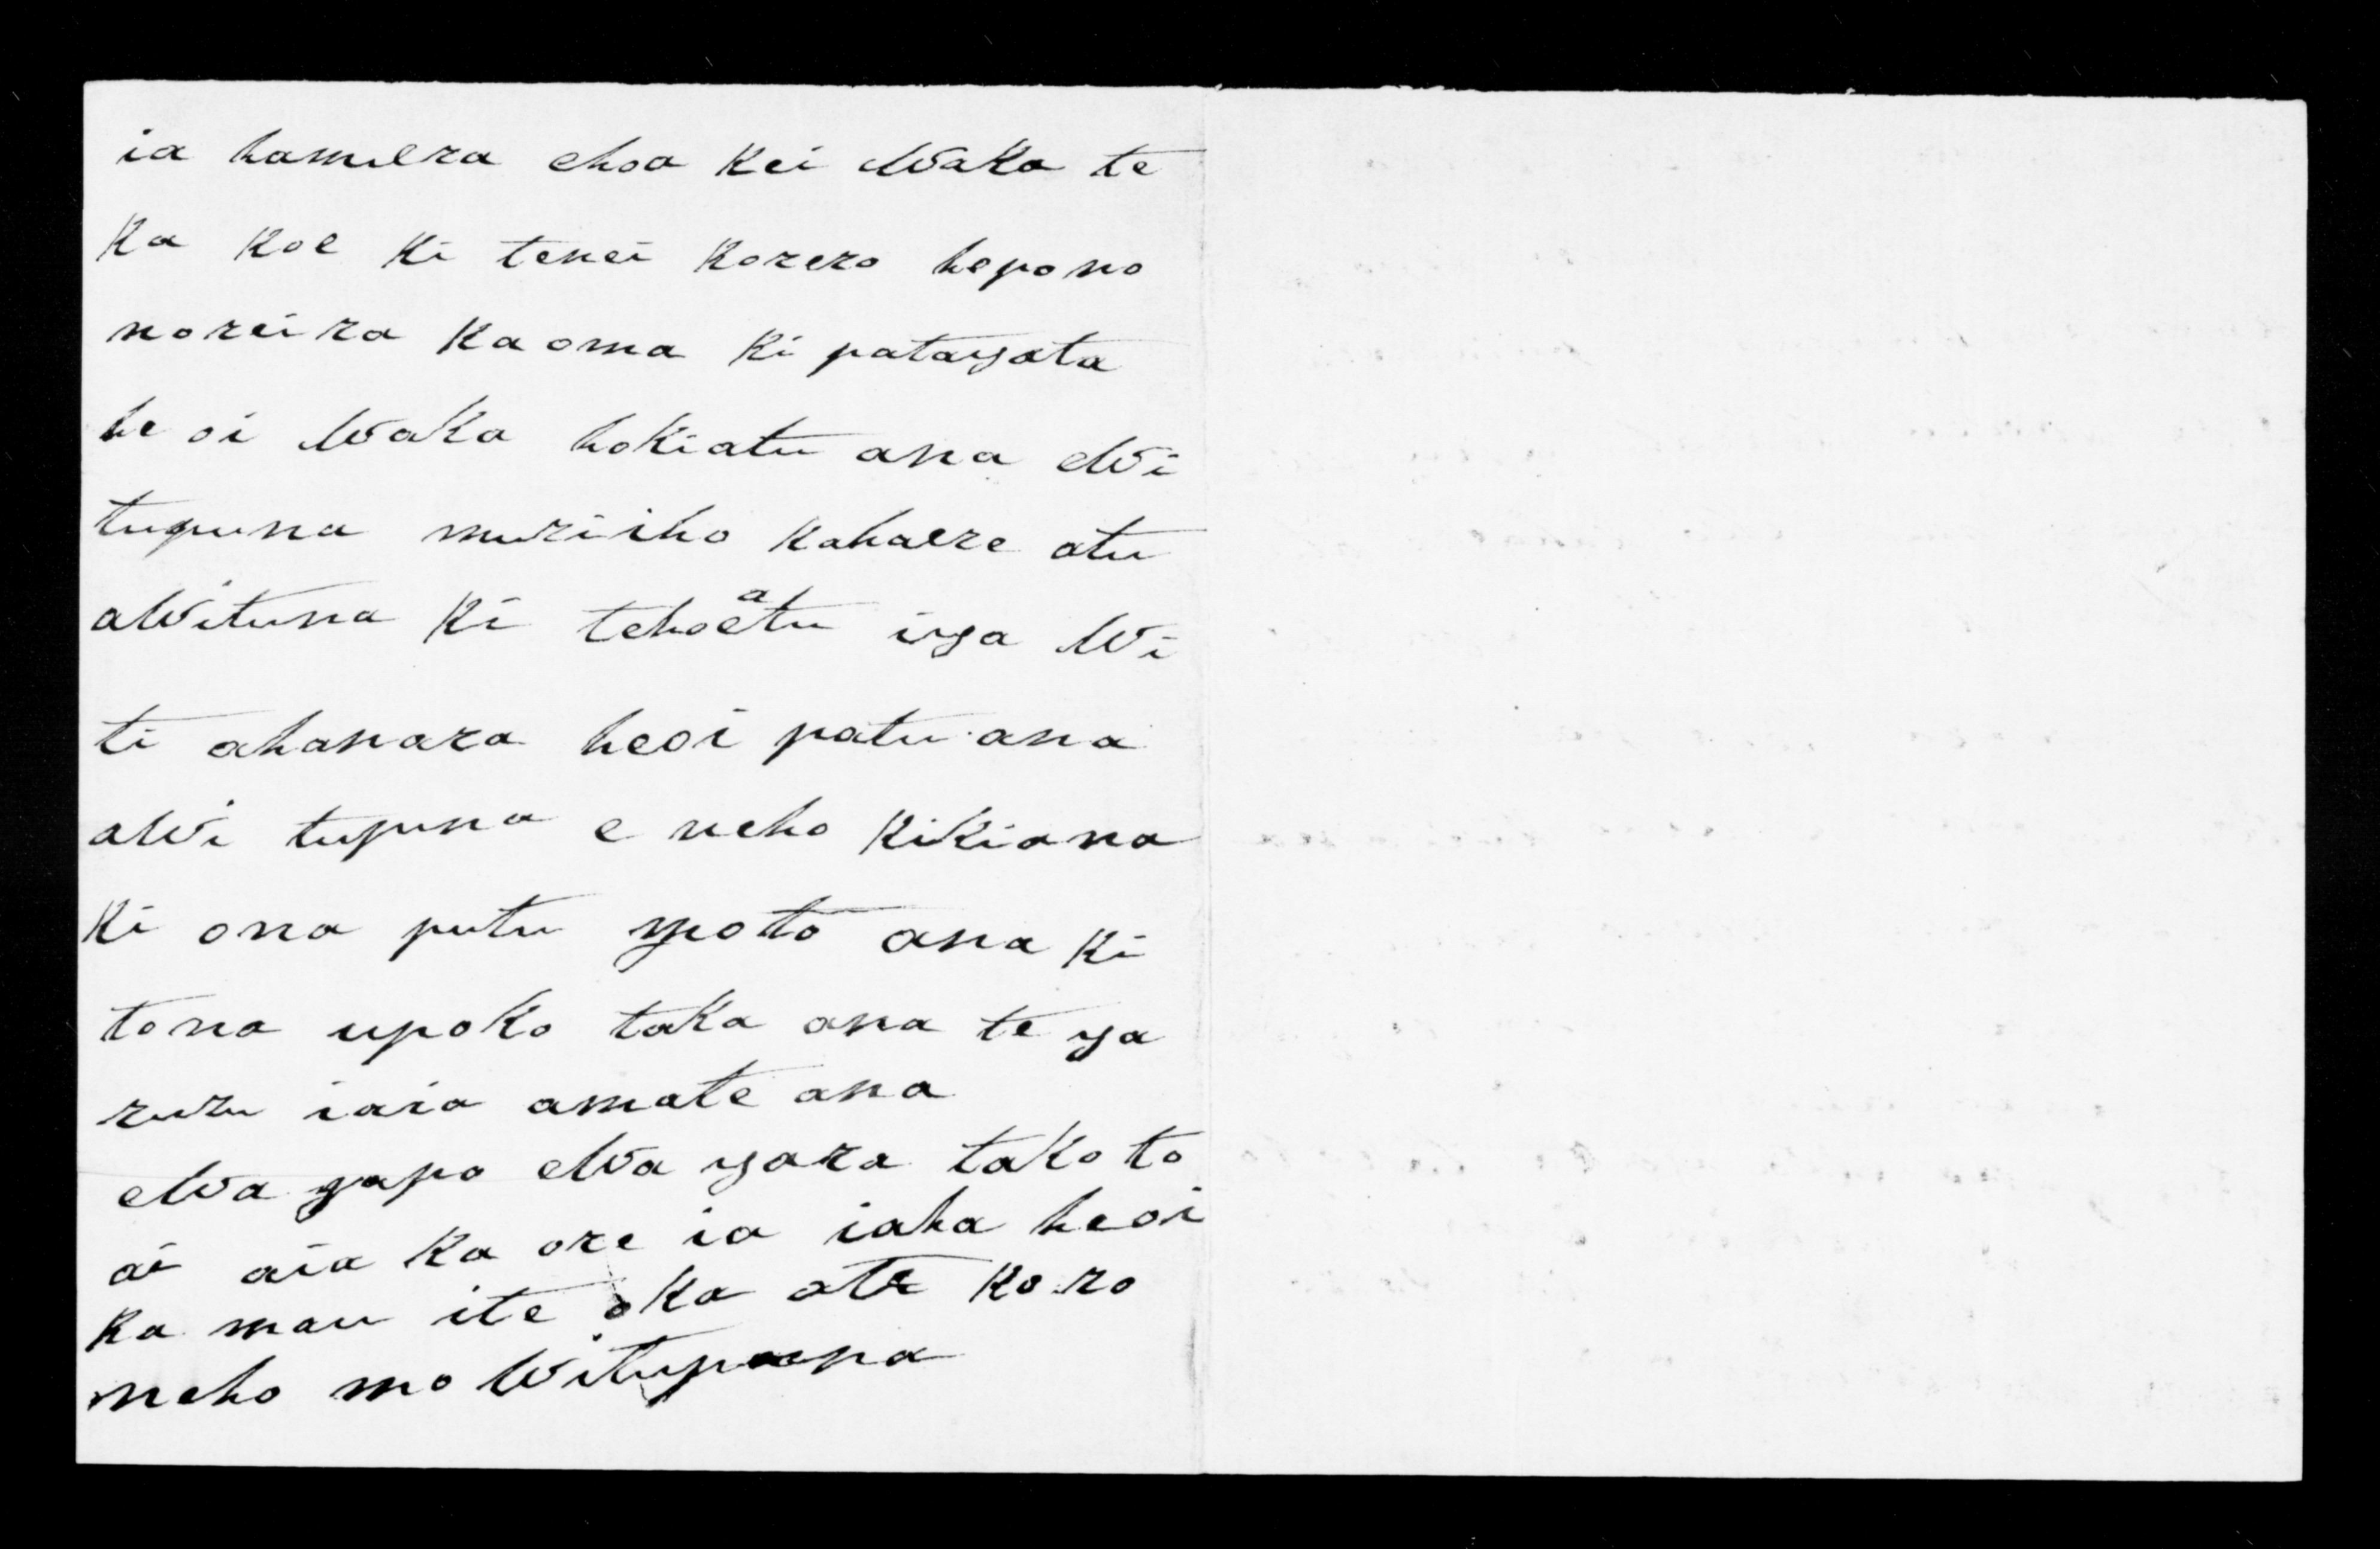 ia hamuera ehoa kei Waka te
ka koe ki tenei korero hepono
noreira kaoma ki patayata
he oi Waka hokiatu ana eWi
tupuna muriiho kahaere atu
aWituna ki tehoatu iya Wi
ti ahanara heoi patu ana
aWi tupuna e neho kikiana
ki ona putu moto ana ki
tona upoko taka ana te ya
ruru iaia amate ana
eWa yapo eWa yara takoto
ai aia ka ore ia iaha heoi
ka mau ite oka ate koro
neho mo Witupuna